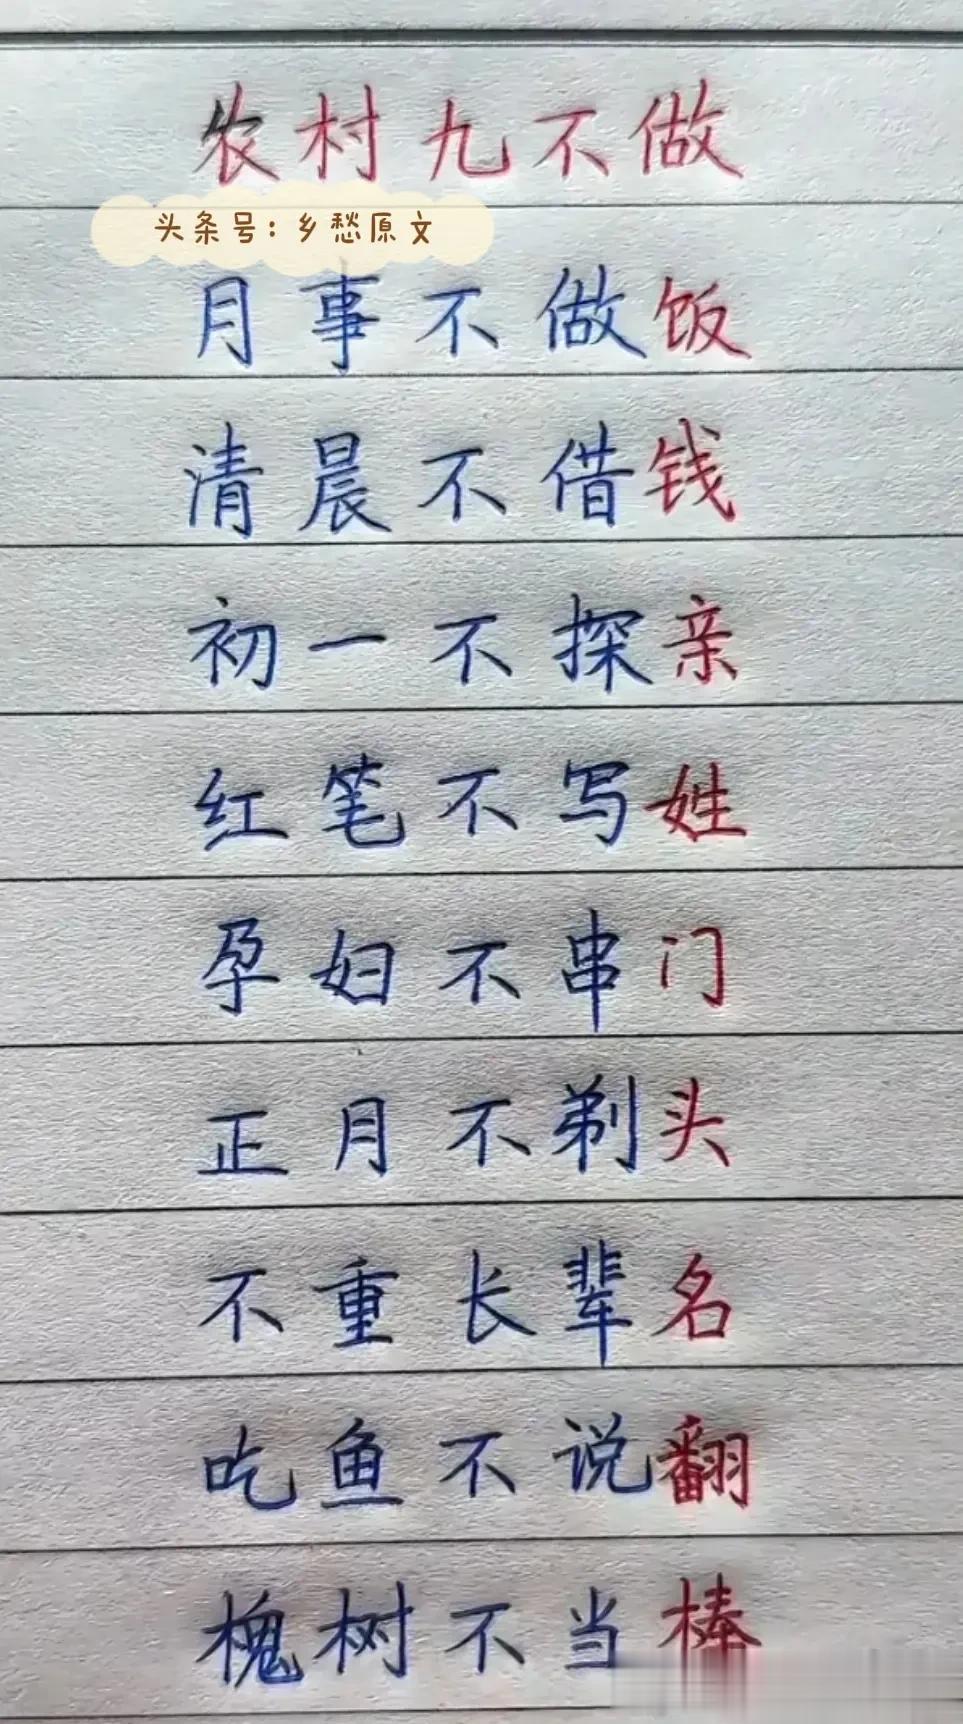 农村九不做
头条号：乡愁原文
月事不做饭
清晨不借钱
初一不探亲
红笔不写姓
孕妇不串门
正月不剃头
不重长辈名
吃鱼不说翻
槐树不当棒